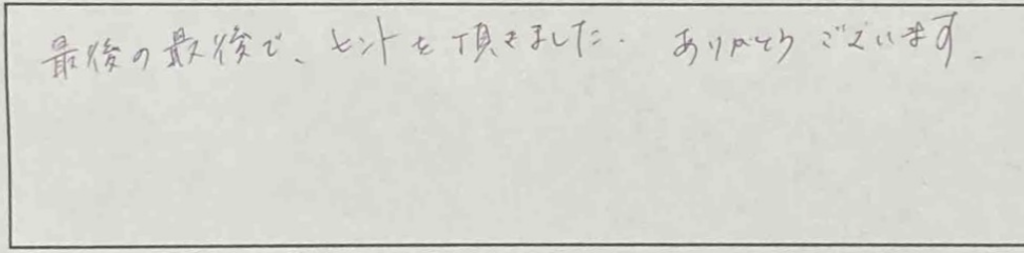 最後の最後で、ヒントを頂きました. ありがとうございます.